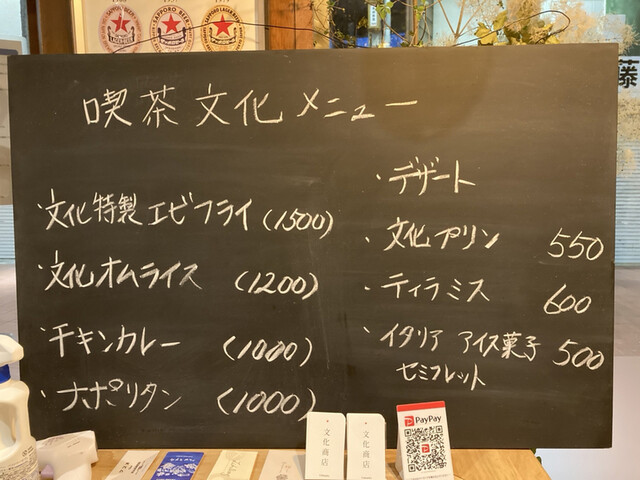 SAPPORO BEER
喫茶文化メニュー
・文化特製エビフライ (1500)
・文化オムライス (1200)
・チキンカレー (1000)
・ナポリタン (1000)
・デザート
・文化プリン 550
・ティラミス 600
・イタリア アイス菓子 500
セミフレット
藤
・文化商店
・文化商店
PayPay